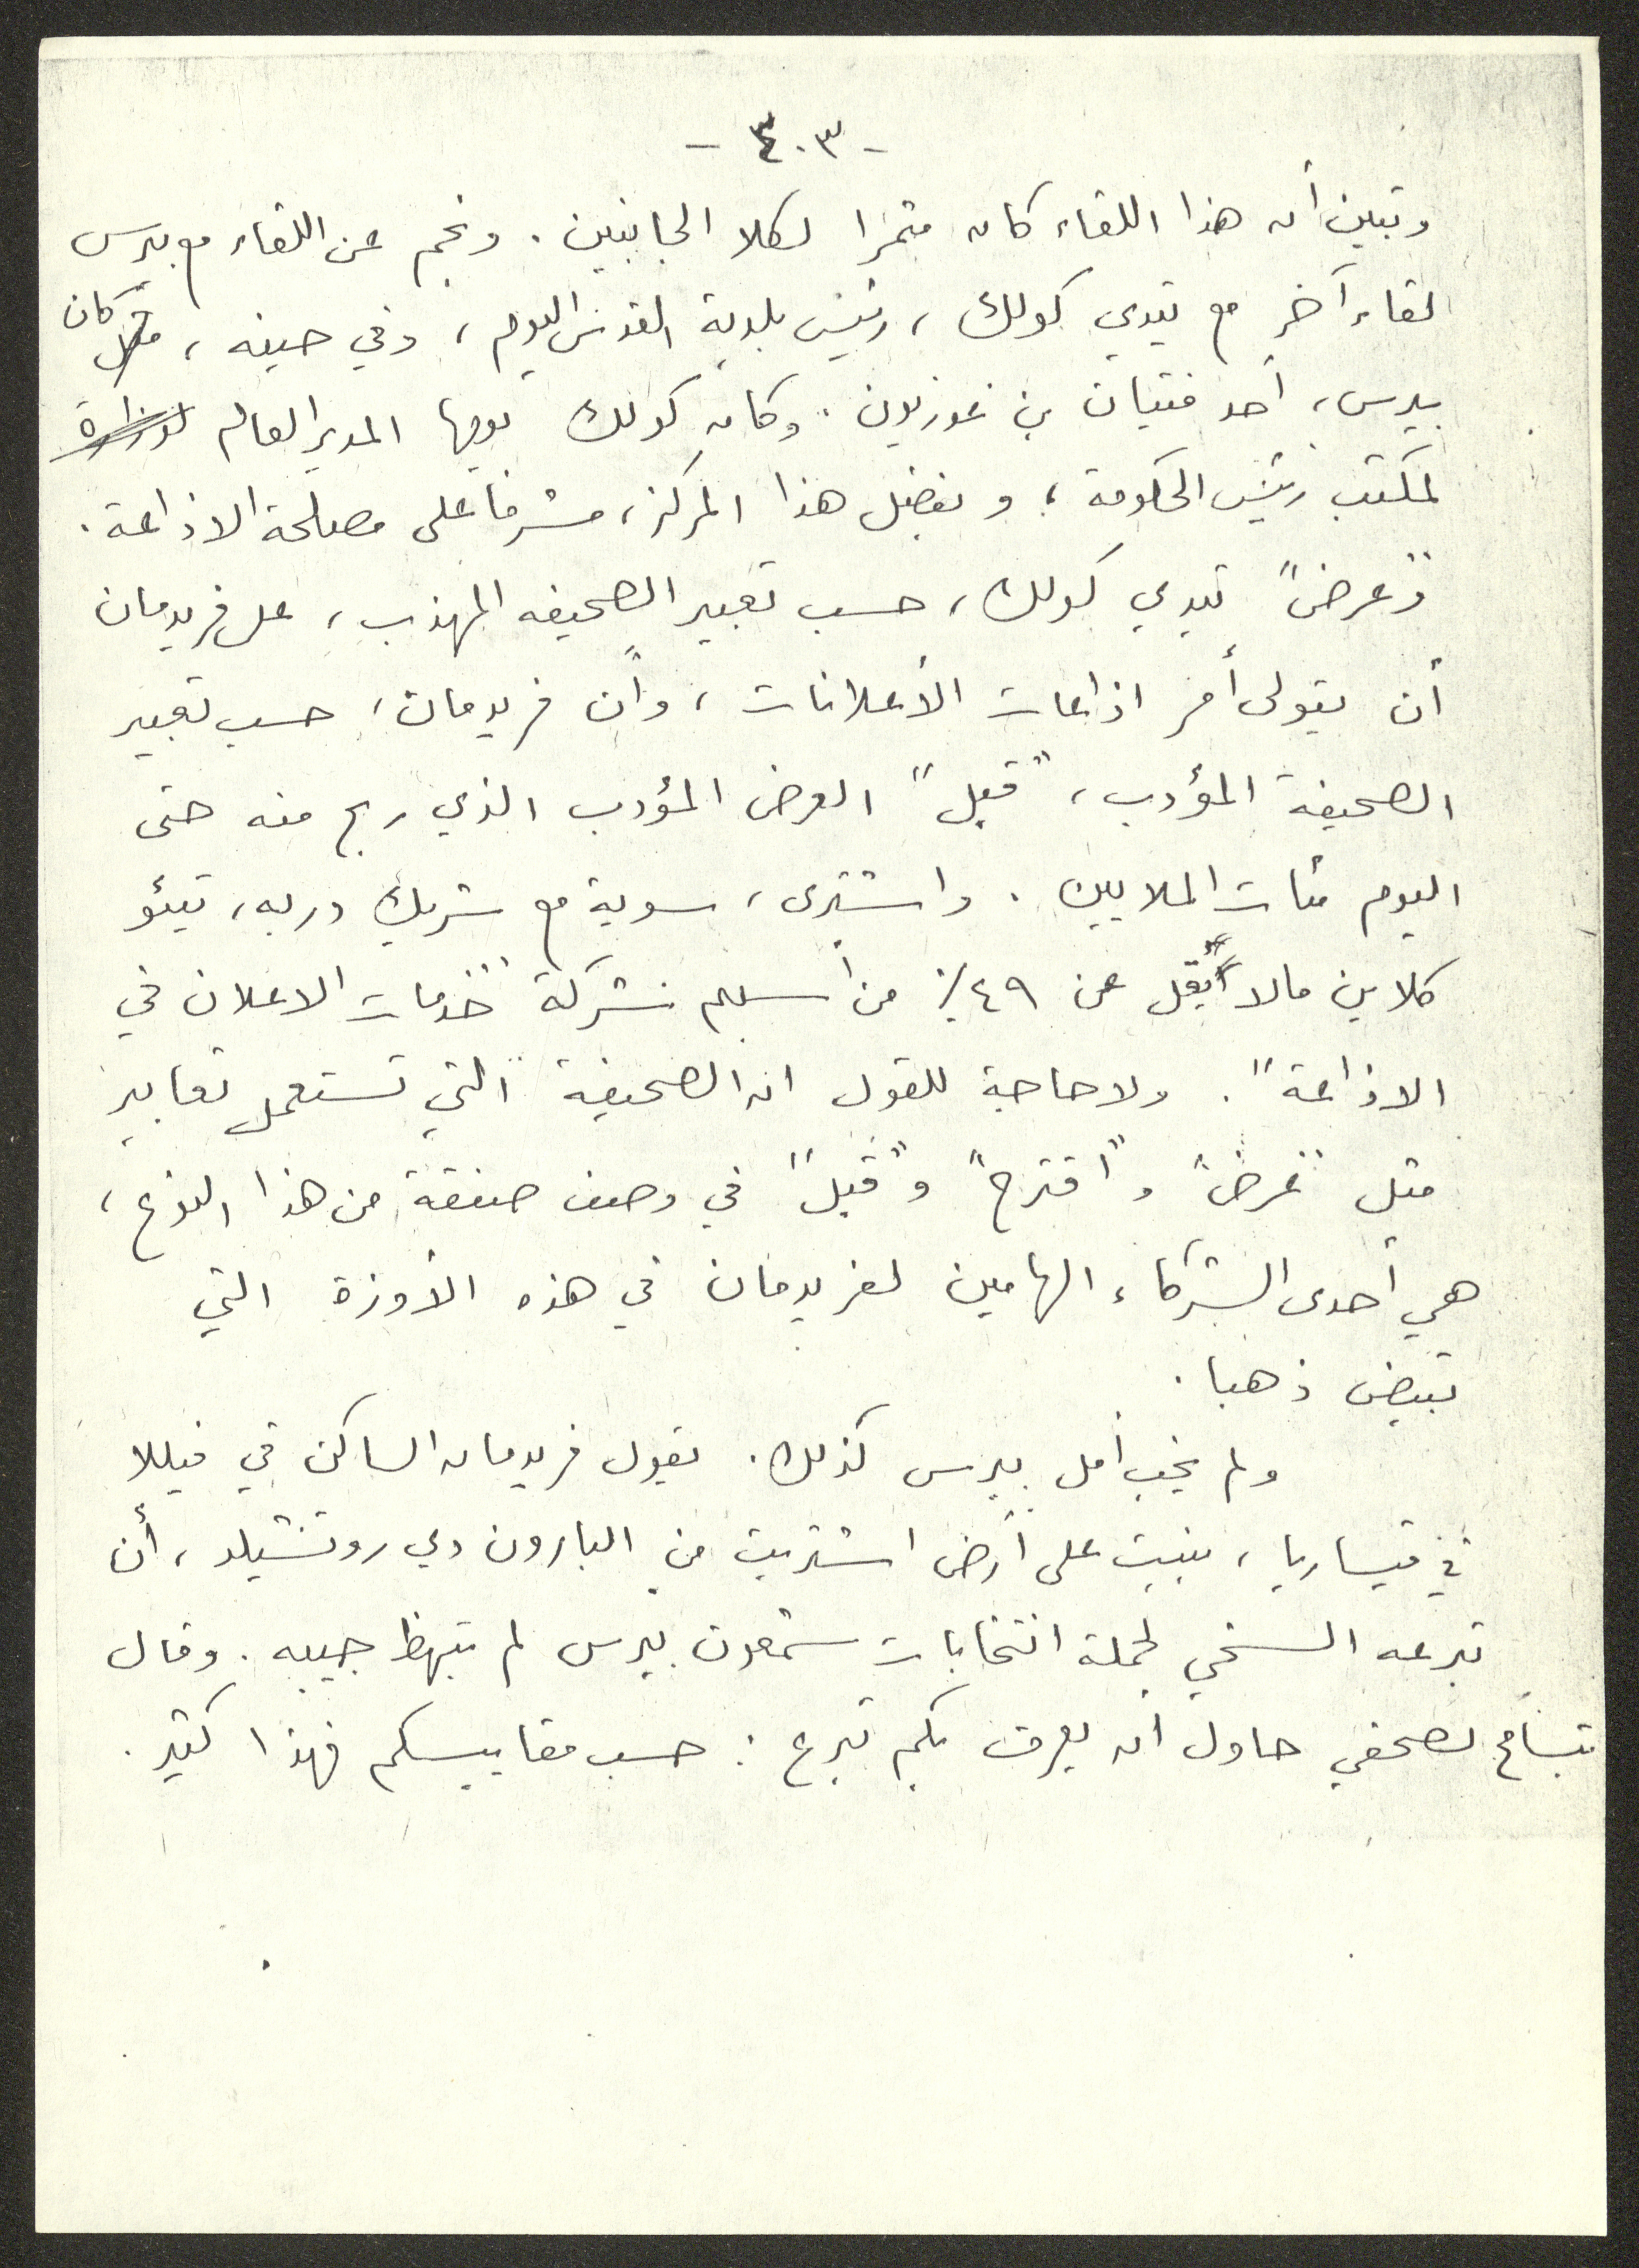 - ٤٠٣ -
وتبين أن هذا اللقاء كان مثمرا لكلا الجانبين . ونجم عن اللقاء مع بيرس
لقاء آخر مع تيدي كولك ، رئيس بلدية القدس اليوم ، وفي حينه ، مثل كان
بيرس ، أحد فتيان بن غوريون . وكان كولك يومها المدير العام لوزارة
لمكتب رئيس الحكومة ، و بفضل هذا المركز ، مشرفا على مصلحة الاذاعة .
و"عرض" تيدي كولك ، حسب تعبير الصحيفه المهذب ، على فريدمان
أن يتولى أمر اذاعات الأعلانات ، وأن فريدمان ، حسب تعبير
الصحيفة المؤدب ، "قبل" العرض المؤدب الذي ربح منه حتى
اليوم مئات الملايين . واشترى ، سوية مع شريك دربه ، تيئو
كلاين مالا يقل عن ٤٩٪ من أسهم شركة "خدمات الاعلان في
الاذاعة" . ولا حاجة للقول ان الصحيفة التي تستعمل تعابير
مثل "عرض" و"اقترح" و"قبل" في وصف صفقة من هذا النوع ،
هي أحدى الشركاء الهامين لفريدمان في هذه الأوزة التي
تبيض ذهبا .
ولم يخب أمل بيرس كذلك . يقول فريدمان الساكن في فيللا
في قيساريا ، بنيت على أرض اشتريت من البارون دي روتشيلد ، أن
تبرعه السخي لحملة انتخابات شمعون بيرس لم تبهظ جيبه . وقال
بتسامح لصحفي حاول ان يعرف بكم تبرع : حسب مقاييسكم فهذا كثير .